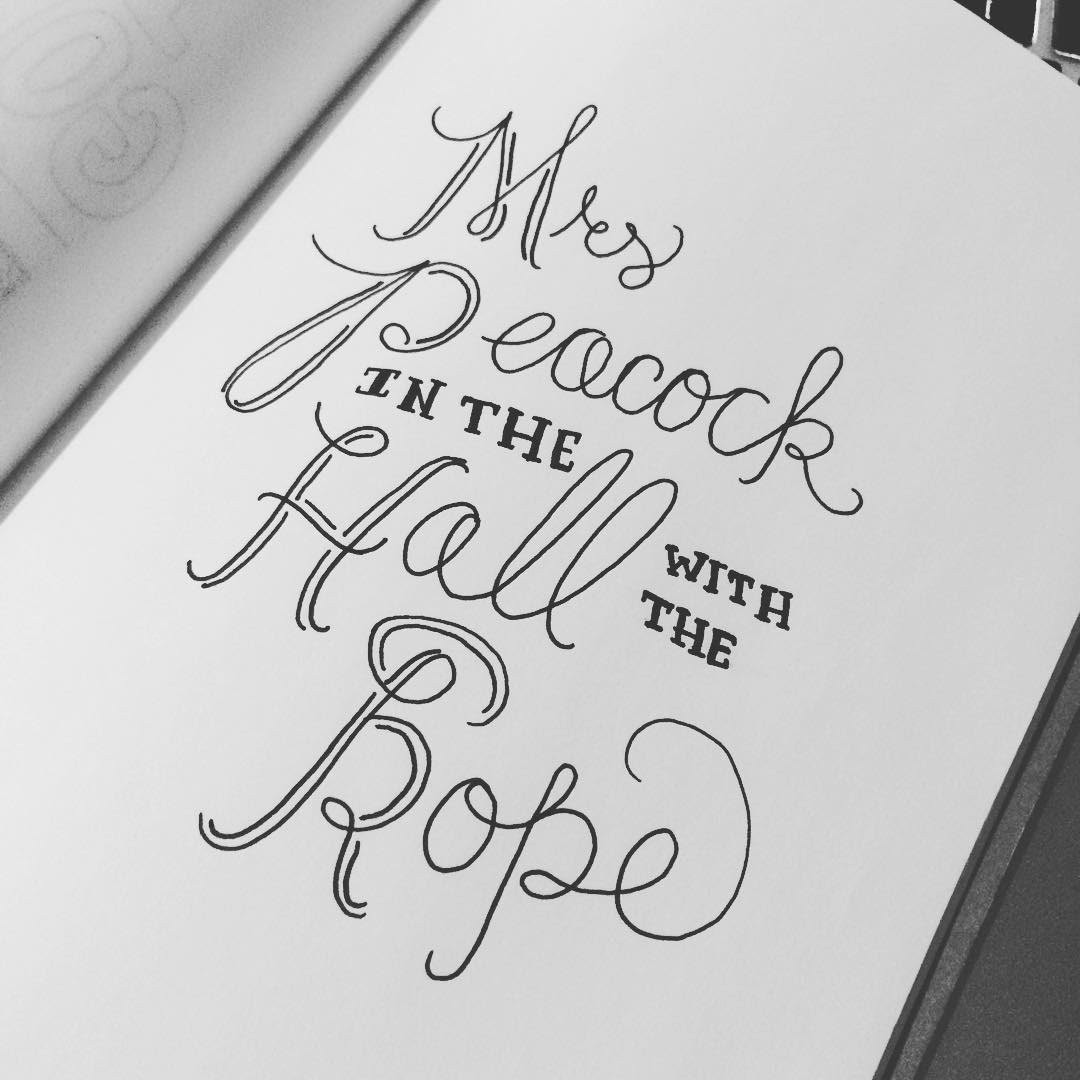 Mrs
Peacock
IN THE
Hall
WITH
THE
Rope